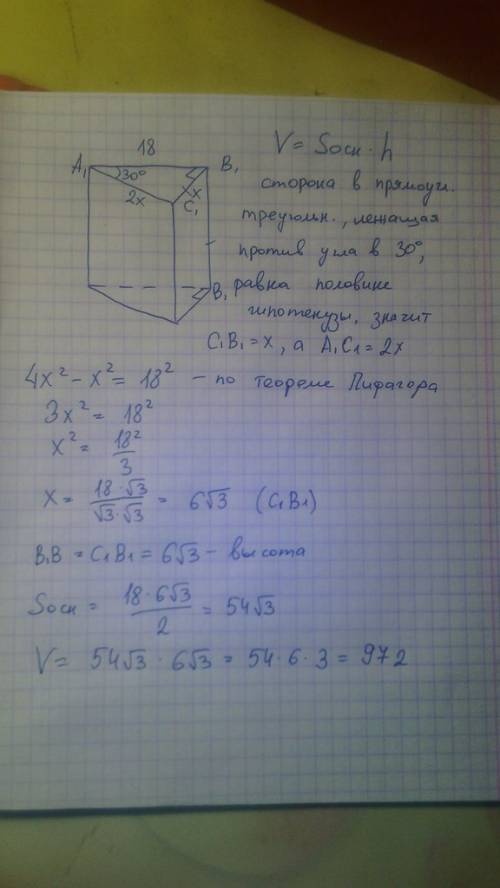 18
V = Sосн · h
A₁ 30° B₁
2x x
C₁
B₁
сторона в прямоуг.
треугольн., лежащая
против угла в 30°,
равна половине
гипотенузы, значит
C₁B₁ = x, а A₁C₁ = 2x
4x² - x² = 18² - по теореме Пифагора
3x² = 18²
x² = 18²/3
x = 18·√3/√3·√3 = 6√3 (C₁B₁)
B₁B = C₁B₁ = 6√3 - высота
Sосн = 18·6√3/2 = 54√3
V = 54√3 · 6√3 = 54·6·3 = 972